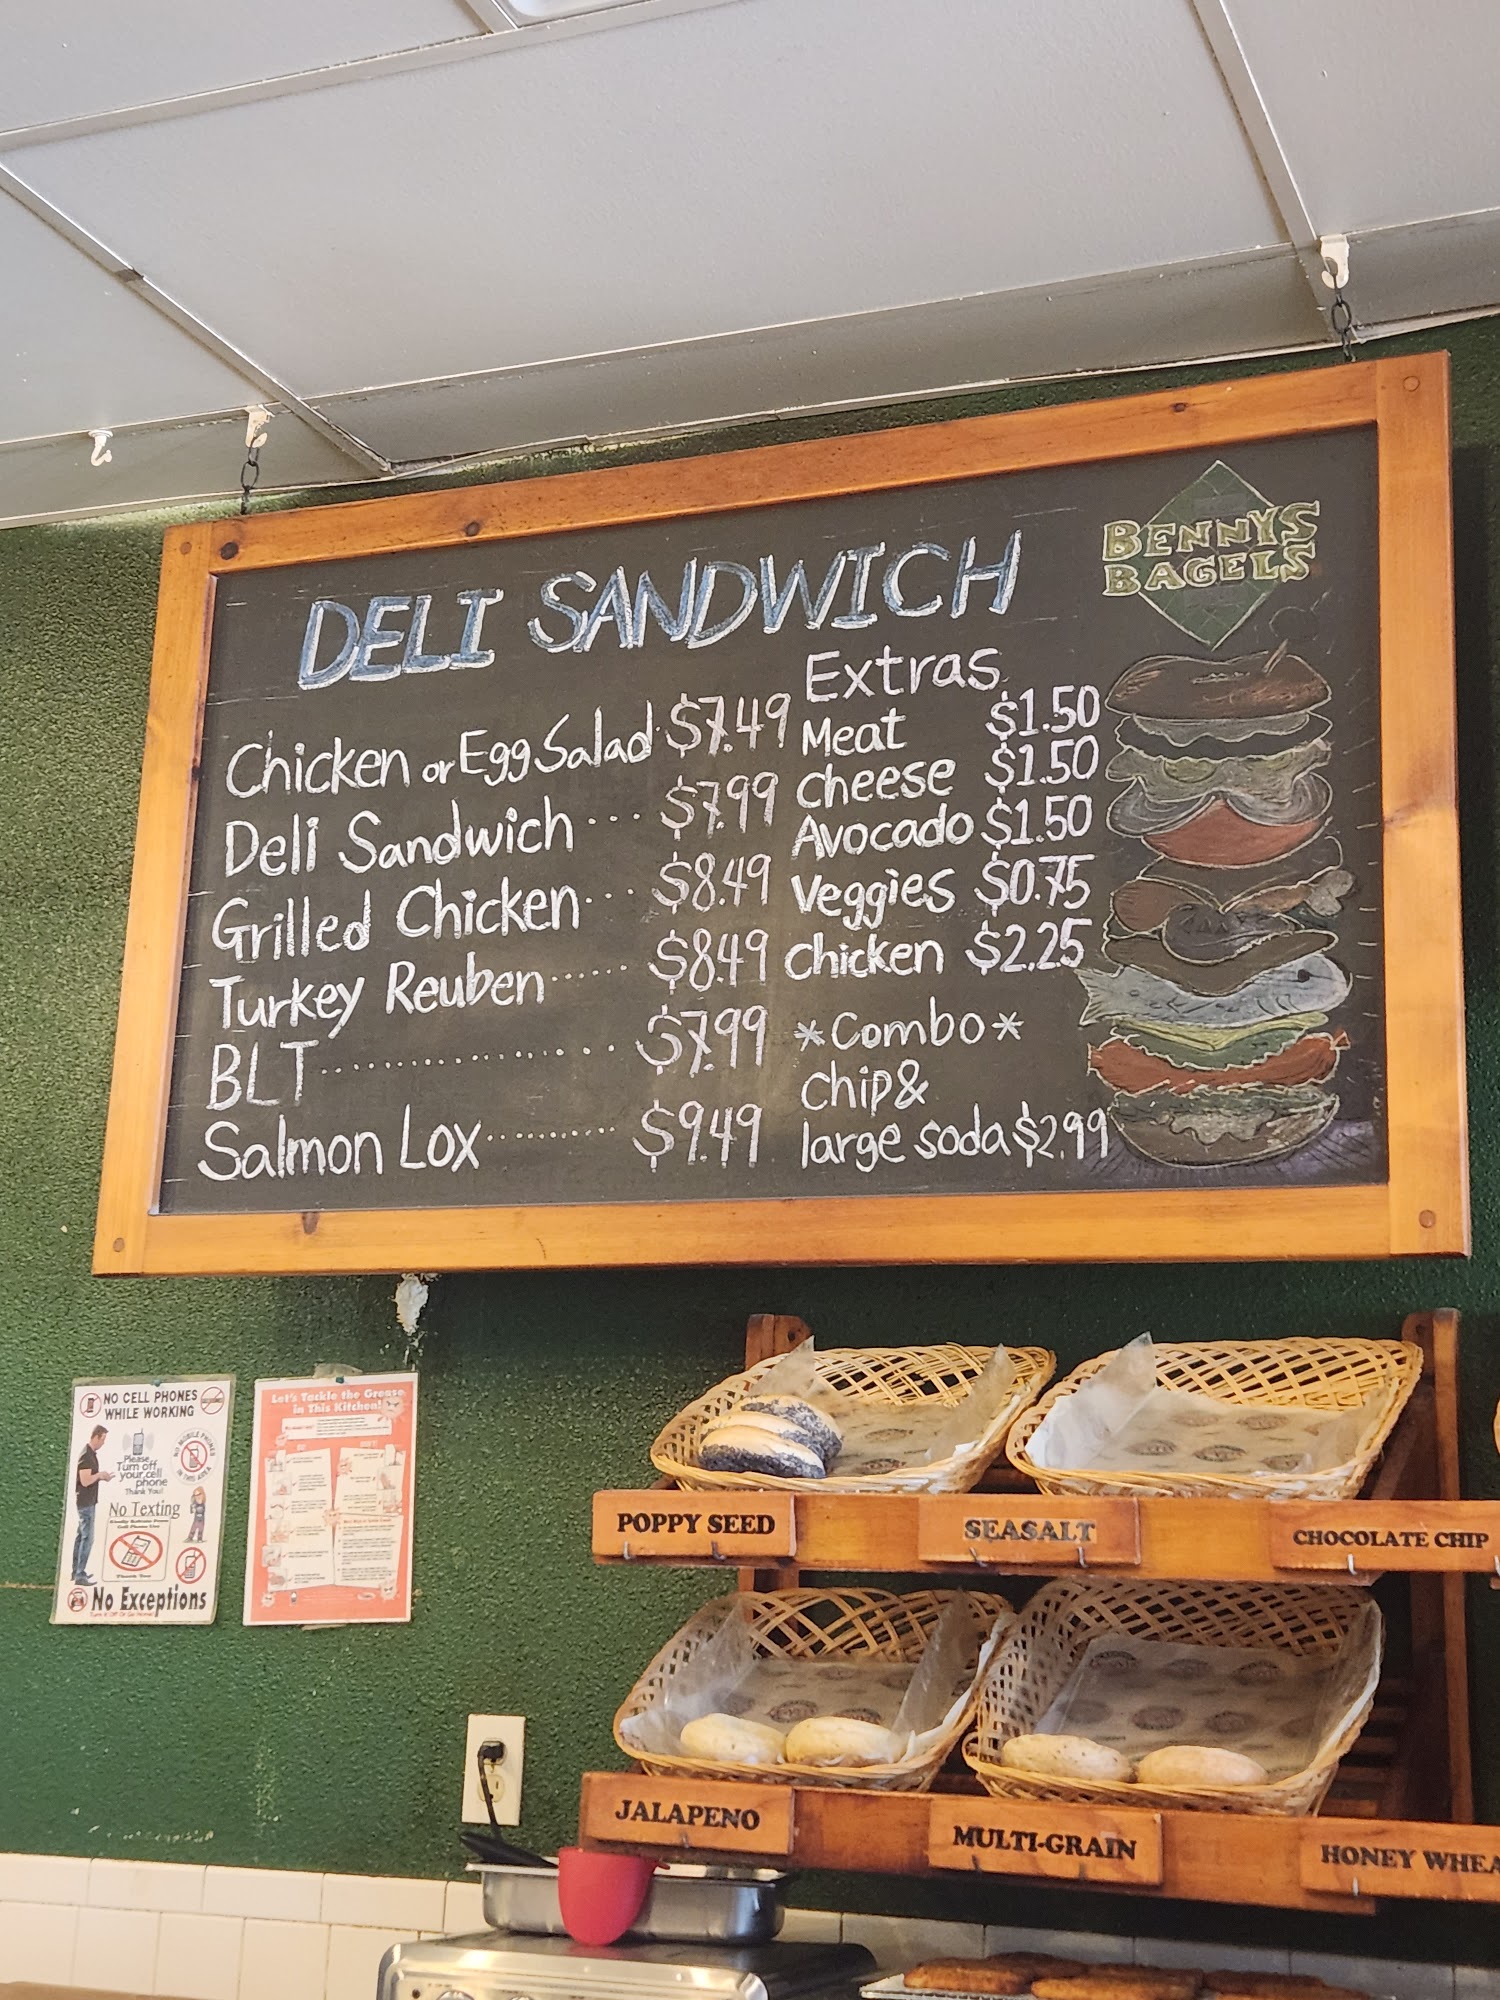 BENNYS
BAGELS
DELI SANDWICH
Chicken or Egg Salad $7.49
Deli Sandwich ... $7.99
Grilled Chicken ... $8.49
Turkey Reuben ...... $8.49
BLT ................ $7.99
Salmon Lox ......... $9.49
Extras
Meat $1.50
Cheese $1.50
Avocado $1.50
Veggies $0.75
Chicken $2.25
*Combo*
Chip &
large soda $2.99
NO CELL PHONES
WHILE WORKING
Please
Turn off
your cell
phone
Thank You!
NO MOBILE PHONES
IN THIS AREA
No Texting
Thank You
No Exceptions
Let's Tackle the Grease
in This Kitchen!
POPPY SEED
SEASALT
CHOCOLATE CHIP
JALAPENO
MULTI-GRAIN
HONEY WHEA